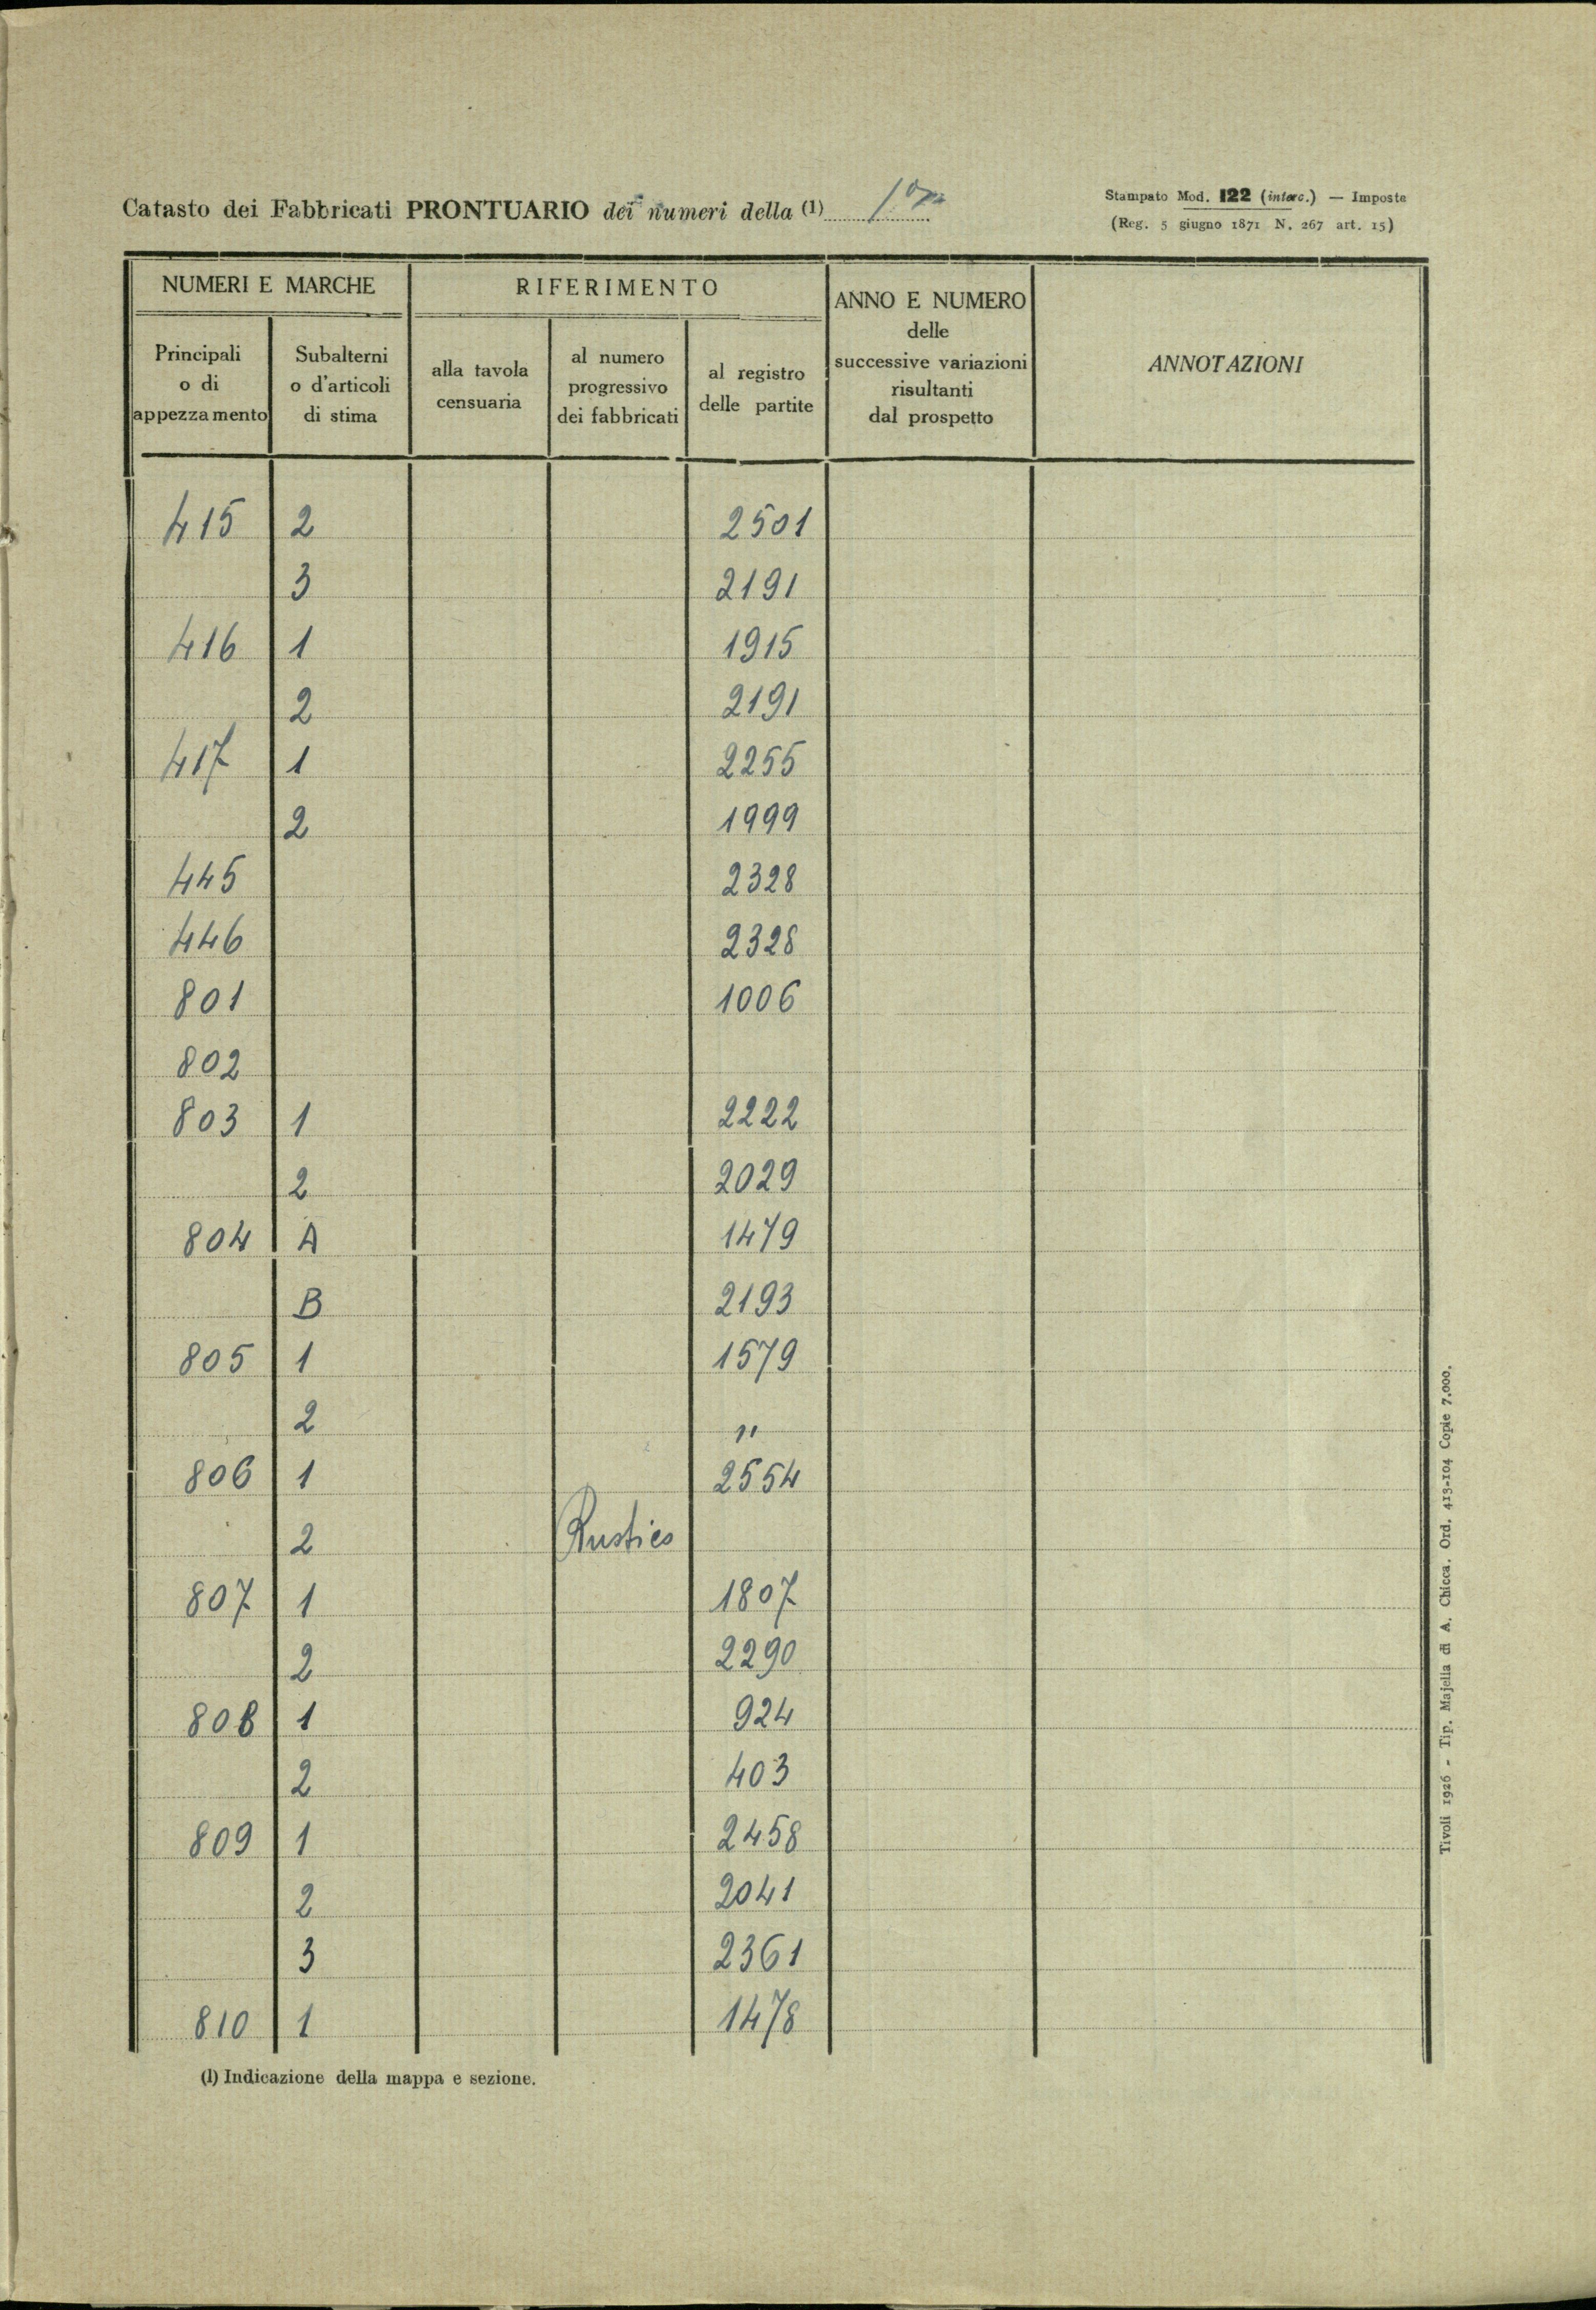 Catasto dei Fabbricati PRONTUARIO dei numeri della (1)
Stampato Mod. 122 (interc.) — Imposte
(Reg. 5 giugno 1871 N. 267 art. 15)
NUMERI E MARCHE
RIFERIMENTO
ANNO E NUMERO
delle
successive variazioni
risultanti
dal prospetto
ANNOTAZIONI
Principali
o di
appezzamento
Subalterni
o d'articoli
di stima
alla tavola
censuaria
al numero
progressivo
dei fabbricati
al registro
delle partite
415 2 2501
3 2191
416 1 1915
2 2191
417 1 2255
2 1999
445 2328
446 2328
801 1006
802
803 1 2222
2 2029
804 A 1479
B 2193
805 1 1579
2 "
806 1 2554
2 Rustico
807 1 1807
2 2290
808 1 924
2 403
809 1 2458
2 2041
3 2361
810 1 1478
(1) Indicazione della mappa e sezione.
Tivoli 1926 - Tip. Majella di A. Chicca. Ord. 413-104 Copie 7.000.